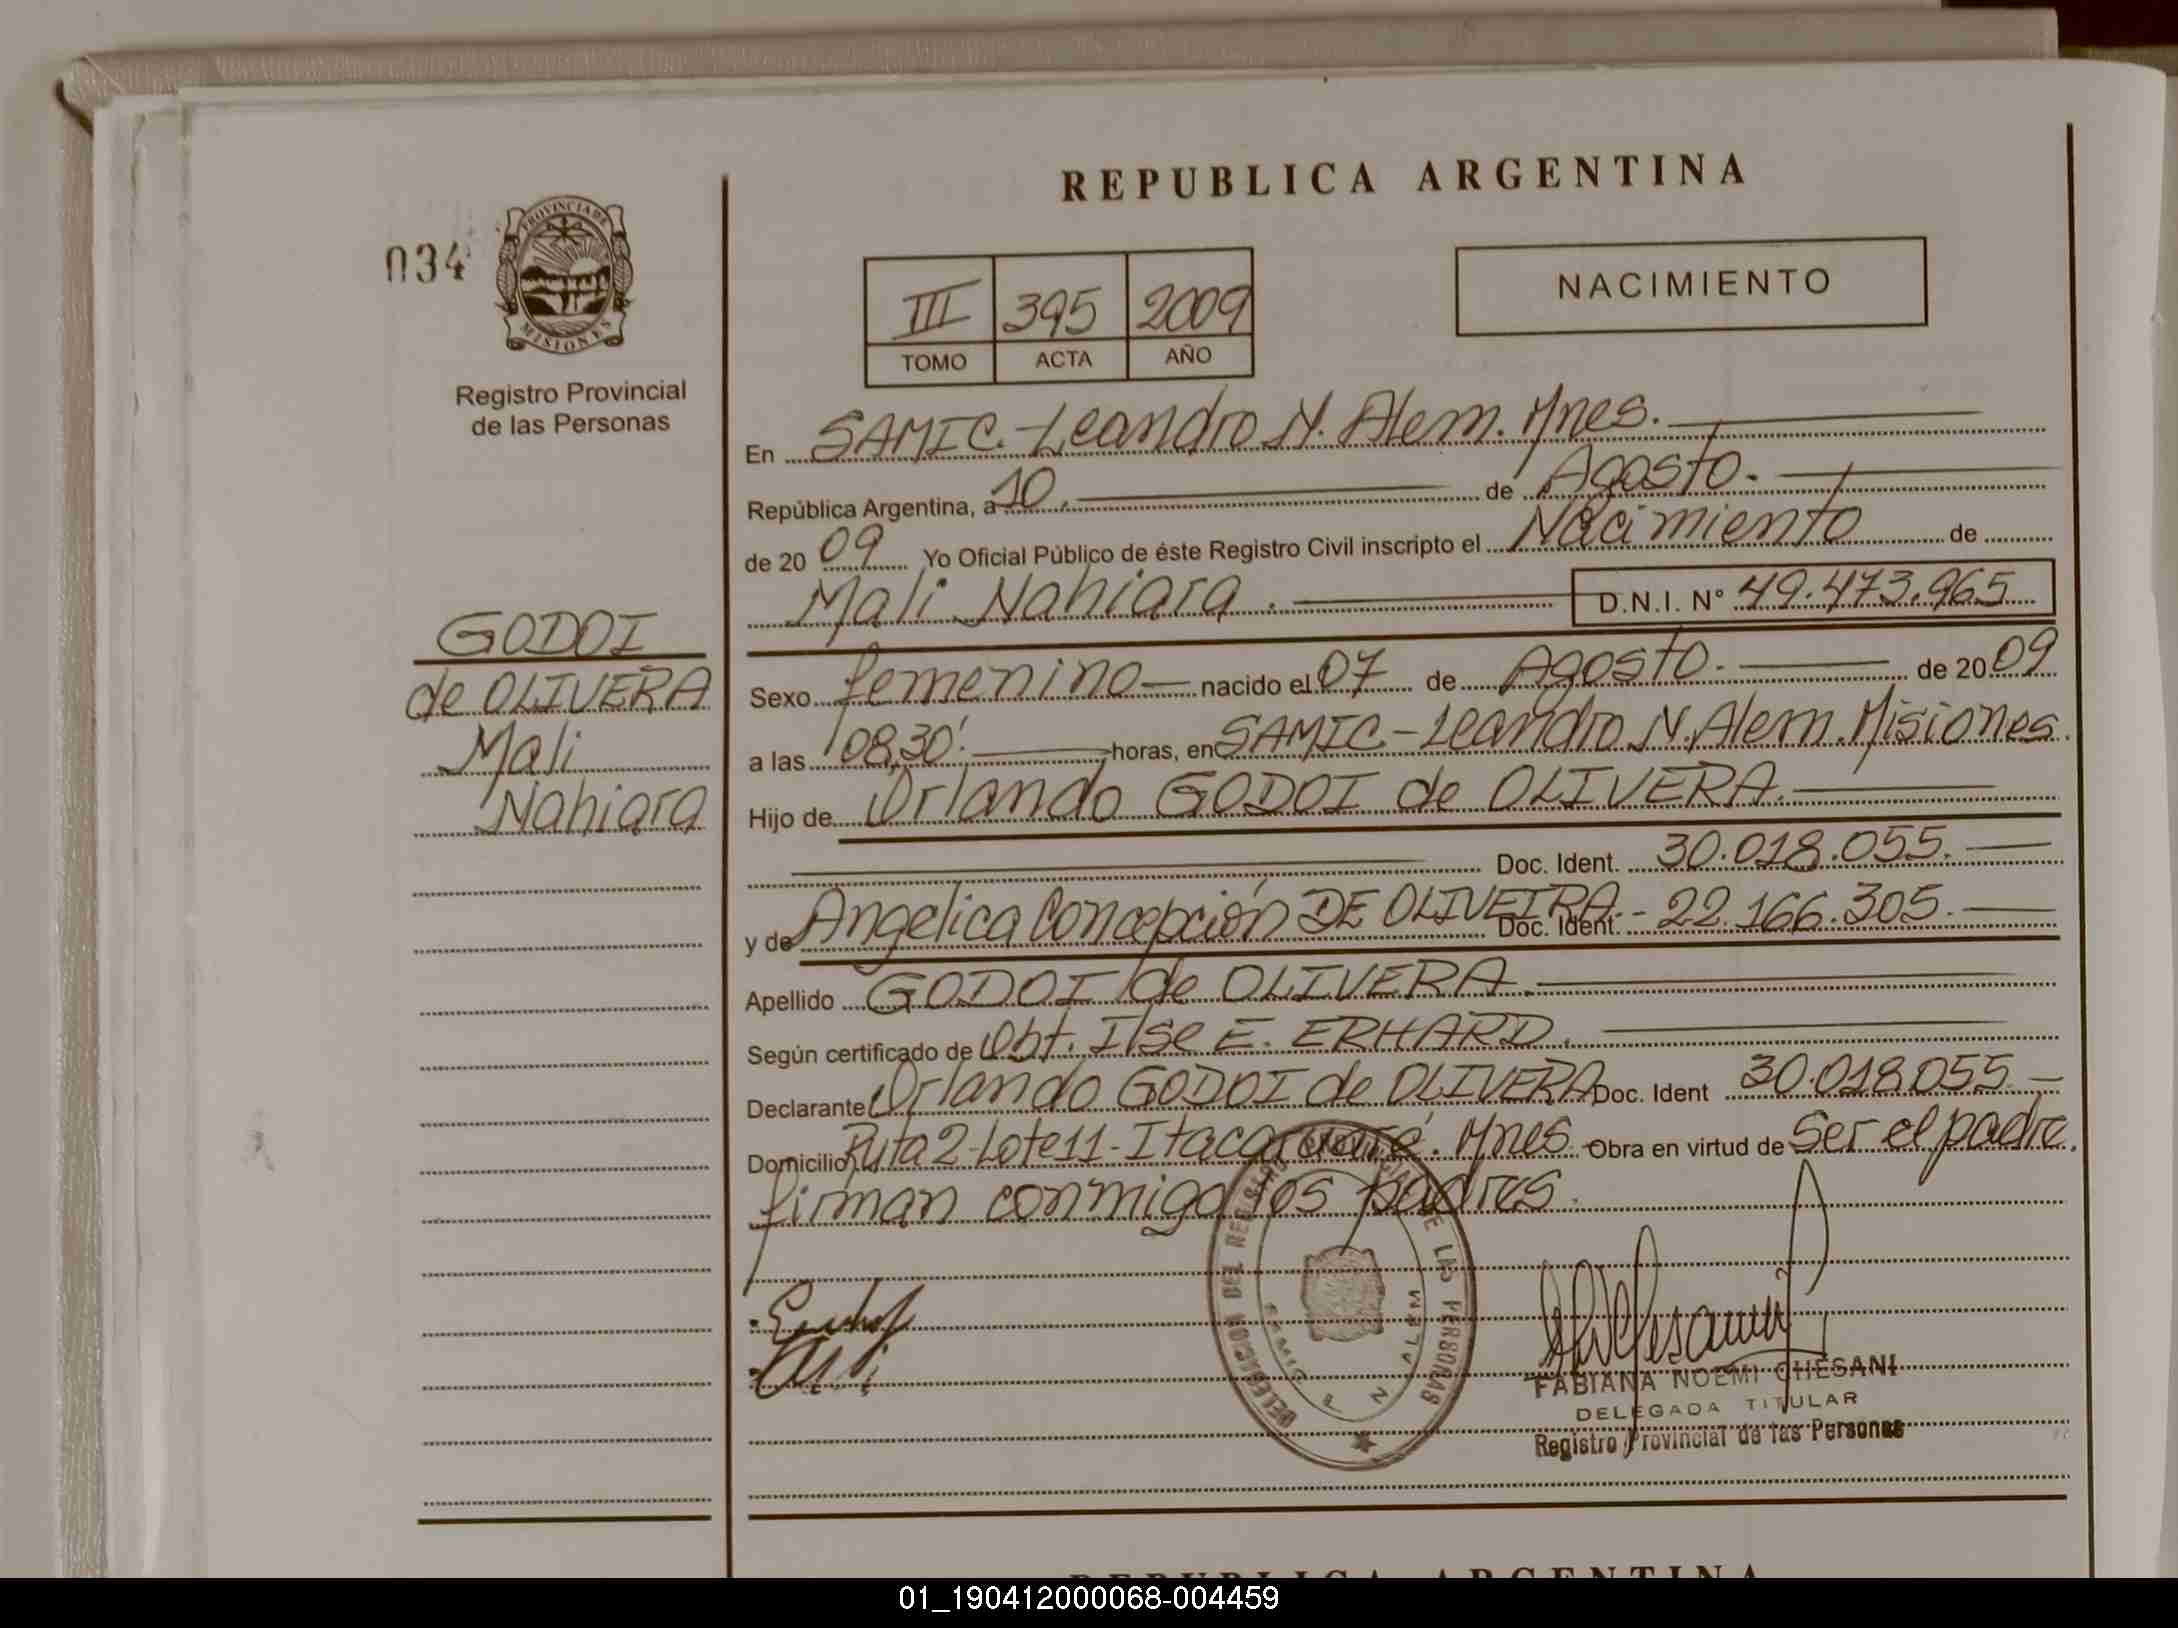 REPUBLICA ARGENTINA
034
PROVINCIA DE
MISIONES
Registro Provincial
de las Personas
III 395 2009
TOMO ACTA AÑO
NACIMIENTO
GODOI
de OLIVERA
Mali
Nahiara
En SAMIC.-Leandro N. Alem. Mnes.
República Argentina, a 10. de Agosto.
de 20 09 Yo Oficial Público de éste Registro Civil inscripto el Nacimiento de
Mali Nahiara. D.N.I. N° 49.473.965
Sexo femenino nacido el 07 de Agosto. de 20 09
a las 08,30'. horas, en SAMIC.-Leandro N. Alem. Misiones.
Hijo de Orlando GODOI de OLIVERA.
Doc. Ident. 30.018.055.
y de Angelica Concepción DE OLIVEIRA. Doc. Ident. 22.166.305.
Apellido GODOI de OLIVERA.
Según certificado de Obt. Ilse E. ERHARD.
Declarante Orlando GODOI de OLIVERA Doc. Ident 30.018.055
Domicilio Ruta 2-Lote 11-Itacaruaré. Mnes. Obra en virtud de Ser el padre.
firman conmigo los padres.
DELEGACION DEL REGISTRO PROVINCIAL DE LAS PERSONAS
SAMIC L N ALEM
FABIANA NOEMI CHESANI
DELEGADA TITULAR
Registro Provincial de las Personas
REPUBLICA ARGENTINA
01_190412000068-004459